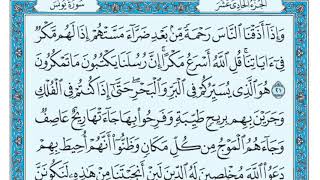 الجزء الحادي عشر
سورة يونس
وَإِذَآ أَذَقْنَا ٱلنَّاسَ رَحْمَةً مِّنۢ بَعْدِ ضَرَّآءَ مَسَّتْهُمْ إِذَا لَهُم مَّكْرٌ
فِىٓ ءَايَاتِنَا ۚ قُلِ ٱللَّهُ أَسْرَعُ مَكْرًا ۚ إِنَّ رُسُلَنَا يَكْتُبُونَ مَا تَمْكُرُونَ
٢١ هُوَ ٱلَّذِى يُسَيِّرُكُمْ فِى ٱلْبَرِّ وَٱلْبَحْرِ ۖ حَتَّىٰٓ إِذَا كُنتُمْ فِى ٱلْفُلْكِ
وَجَرَيْنَ بِهِم بِرِيحٍ طَيِّبَةٍ وَفَرِحُوا۟ بِهَا جَآءَتْهَا رِيحٌ عَاصِفٌ
وَجَآءَهُمُ ٱلْمَوْجُ مِن كُلِّ مَكَانٍ وَظَنُّوٓا۟ أَنَّهُمْ أُحِيطَ بِهِمْ
دَعَوُا۟ ٱللَّهَ مُخْلِصِينَ لَهُ ٱلدِّينَ لَئِنْ أَنجَيْتَنَا مِنْ هَٰذِهِۦ لَنَكُونَنَّ